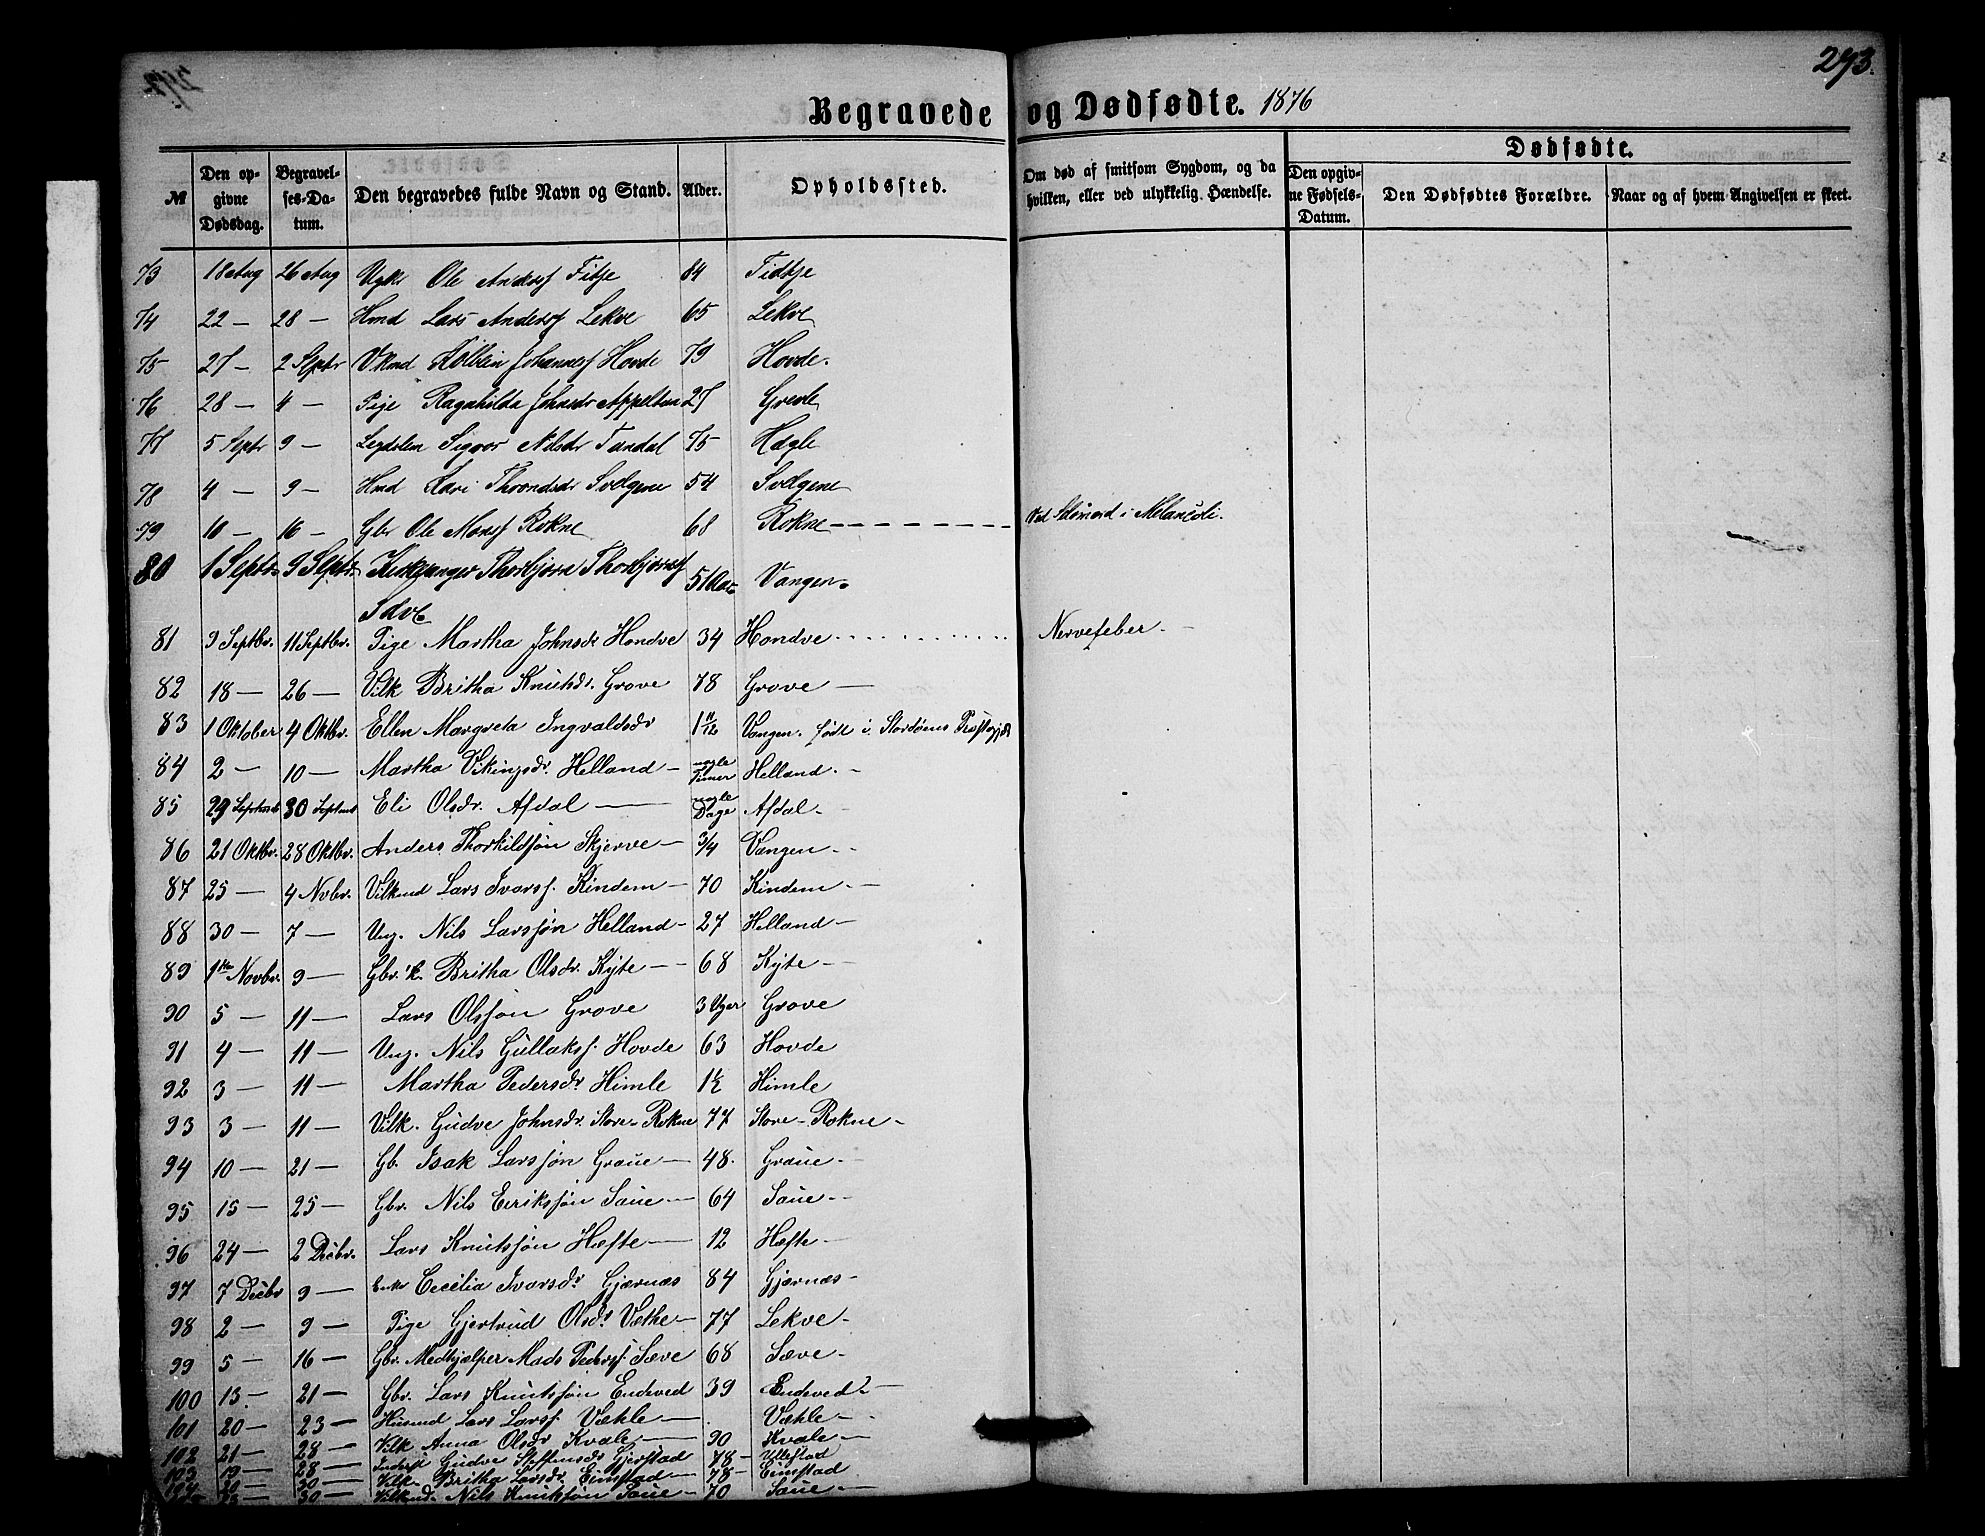 293.
Begravede og Dødfødte. 1876
№
Den opgivne Dødsdag.
Begravelses-Datum.
Den begravedes fulde Navn og Stand.
Alder.
Opholdssted.
Om død af smitsom Sygdom, og da hvilken, eller ved ulykkelig Hændelse.
Dødfødte.
Den opgivne Fødsels-Datum.
Den Dødfødtes Forældre.
Naar og af hvem Angivelsen er skeet.
73 18 Aug 26 Aug Ole Anders Fitje 84 Fidtje
74 22 — 28 — Hmd Lars Anders Lekve 65 Lekve
75 27 — 2 Septr Vkmd Johannes Hovde 79 Hovde.
76 28 — 4 — Pige Ragnhilda Johnsdr 27
77 5 Septr 9 — Nilsdr 75 Hægle
78 4 — 9 — Kari 54
79 10 — 16 — Gbr Ole Monsf Rokne 68 Rokne — — — — — — Ved Selvmord i Melancoli.
80 1 Septr 9 Septr. Kirkesanger Thorbjørn Thorbjørns 51 Vangen.
81 9 Septbr. 11 Septbr. Pige Martha Johnsdr Hondve 34 Hondve . . . . . . . Nervefeber. —
82 18 — 26 — Vilk Britha Knutsdr. Grove 78 Grove —
83 1 Oktober 4 Oktbr. Ellen Margreta Ingvaldsdr 1 11/12 Vangen. født i Stordøens Præstegjæld
84 2 — 10 — Martha Vikingsdr. Helland — nogle Timer Helland. —
85 29 Septemb 30 Septemb Eli Olsdr. Afdal — nogle Dage Afdal —
86 21 Oktbr. 28 Oktbr. Anders Thorkildsøn Skjerve — 3/4 Vangen. —
87 25 — 4 Novbr. Vilkmd Lars Ivarsf. Kindem — 70 Kindem. —
88 30 — 7 — Ung. Nils Larssøn Helland — 27 Helland —
89 1ste Novbr. 9 — Gbr.'k. Britha Olsdr. Kyte — 68 Kyte —
90 5 — 11 — Lars Olssøn Grove 3 Uger Grove
91 4 — 11 — Ung. Nils Gullaksf. Hovde 63 Hovde
92 3 — 11 — Martha Pedersdr Himle 1½ Himle
93 3 — 11 — Vilk. Gudve Johnsdr. Store-Rokne 77 Store-Rokne —
94 10 — 21 — Gb. Isak Larssøn Graue — 48. Graue —
95 15 — 25 — Gbr. Nils Eerikssøn Saue — 64 Saue —
96 24 — 2 Decbr. Lars Knutssøn Hæfte — 12 Hæfte —
97 7 Decbr 9 — Enke Cecilia Ivarsdr Gjærnæs 84 Gjærnæs —
98 2 — 9 — Pige Gjertrud Olsdr Væthe — 77 Lekve —
99 5 — 16 — Gbr. Medhjælper Mads Pedersf. Sæve 68 Sæve —
100 13 — 21 — Gbr. Lars Knutssøn Endeved 39 Endeved? —
101 20 — 23 — Husmd Lars Larsf. Væhle — Væhle —
102 21 — 28 — Vilk Anna Olsdr Kvale — 90 Kvale —
103 19 — 28 — Inderst Gudve Steffensdr Gjerstad 78 — Ullestad
104 20 — 30 — Vilk. Britha Larsdr. Eimstad — 78 — Eimstad
30 — Vilkmd. Nils Knutssøn Saue — 70 Saue —